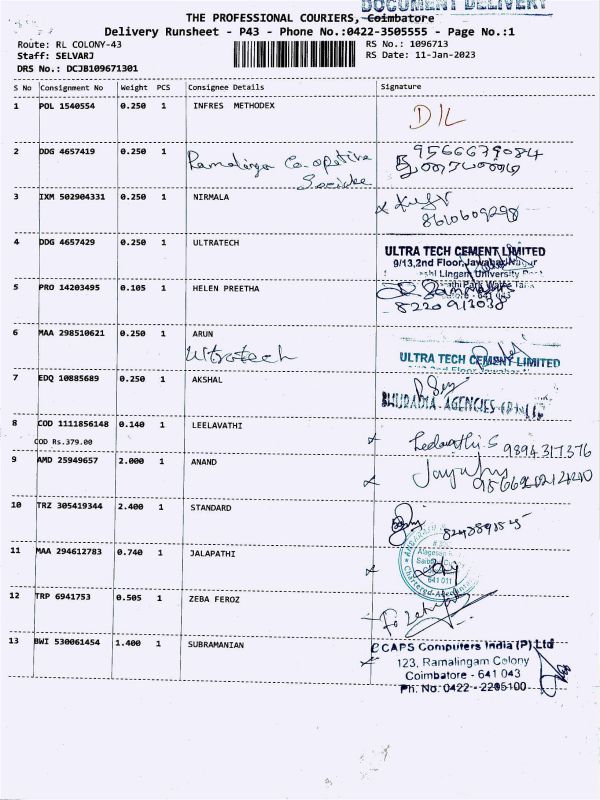 DOCUMENT DELIVERY
THE PROFESSIONAL COURIERS, Coimbatore
Delivery Runsheet - P43 - Phone No.:0422-3505555 - Page No.:1
Route: RL COLONY-43 RS No.: 1096713
Staff: SELVARJ RS Date: 11-Jan-2023
DRS No.: DCJB109671301
S No Consignment No Weight PCS Consignee Details Signature
1 POL 1540554 0.250 1 INFRES METHODEX
D/L
2 DDG 4657419 0.250 1 Ramalinga Co-opative 9566679084
Socide
3 IXM 502904331 0.250 1 NIRMALA
8610609298
4 DDG 4657429 0.250 1 ULTRATECH
ULTRA TECH CEMENT LIMITED
9/13,2nd Floor,Jawahar Nagar
Lingam University
5 PRO 14203495 0.105 1 HELEN PREETHA
641 043
8220911038
6 MAA 298510621 0.250 1 ARUN
Ultratech
ULTRA TECH CEMENT LIMITED
7 EDQ 10885689 0.250 1 AKSHAL
BHURADIA AGENCIES (P) LTD
8 COD 1111856148 0.140 1 LEELAVATHI
COD Rs.379.00
Leelavathi S 9894317376
9 AMD 25949657 2.000 1 ANAND
10 TRZ 305419344 2.400 1 STANDARD
11 MAA 294612783 0.740 1 JALAPATHI
641 011
Chartered Accountants
12 TRP 6941753 0.505 1 ZEBA FEROZ
13 BWI 530061454 1.400 1 SUBRAMANIAN
CAPS Computers India (P) Ltd
123, Ramalingam Colony
Coimbatore - 641 043
Ph. No: 0422 - 2205100